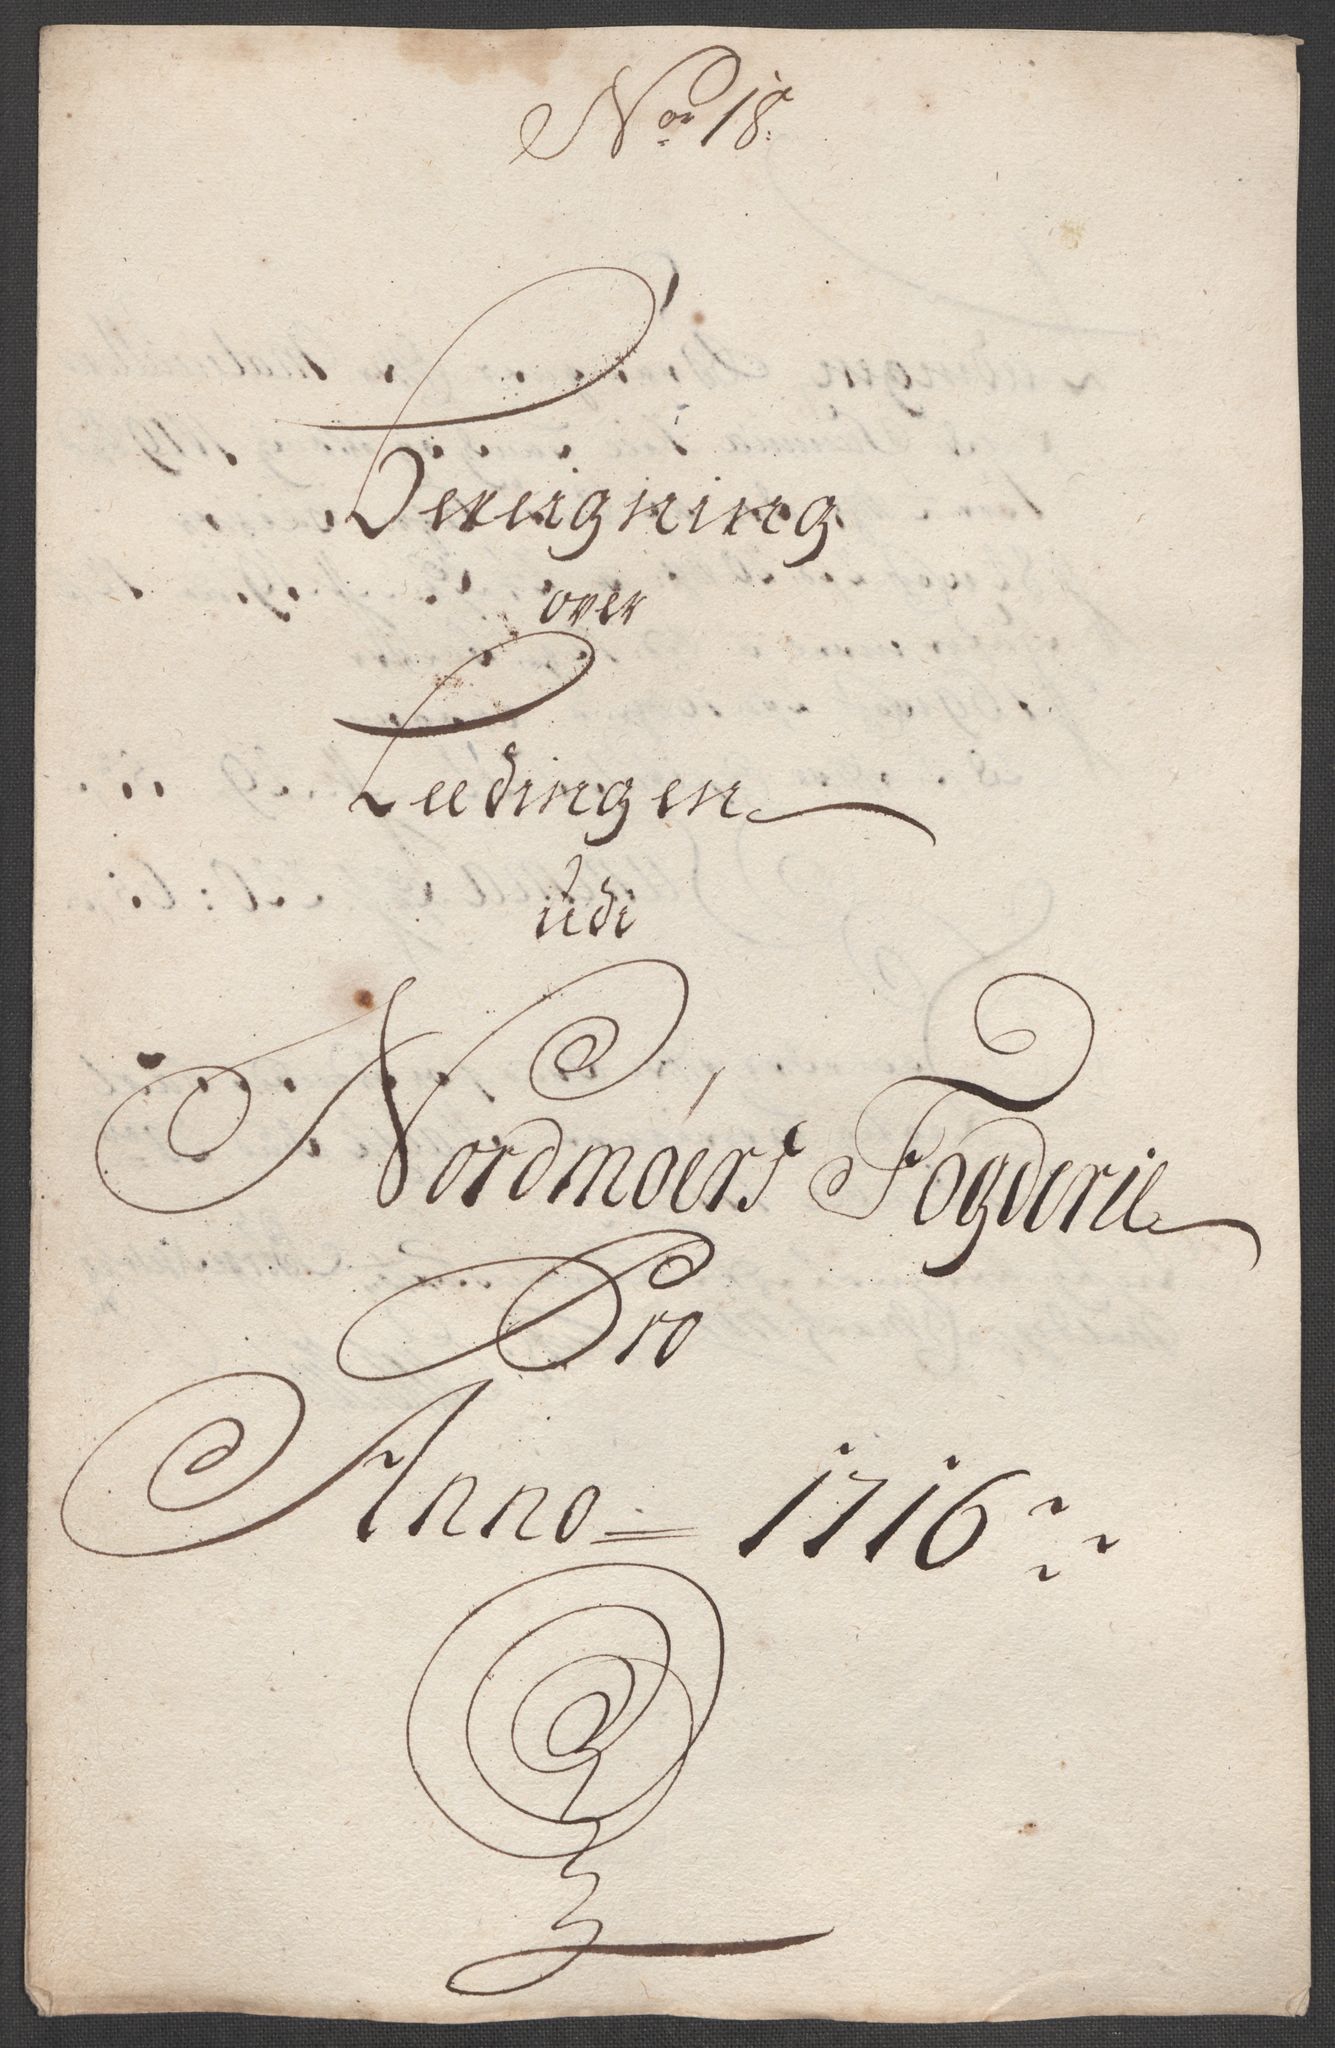 No 18
Bereigning
over
Leedingen
udi
Nordmöers Fogderie
Pro
Anno 1716